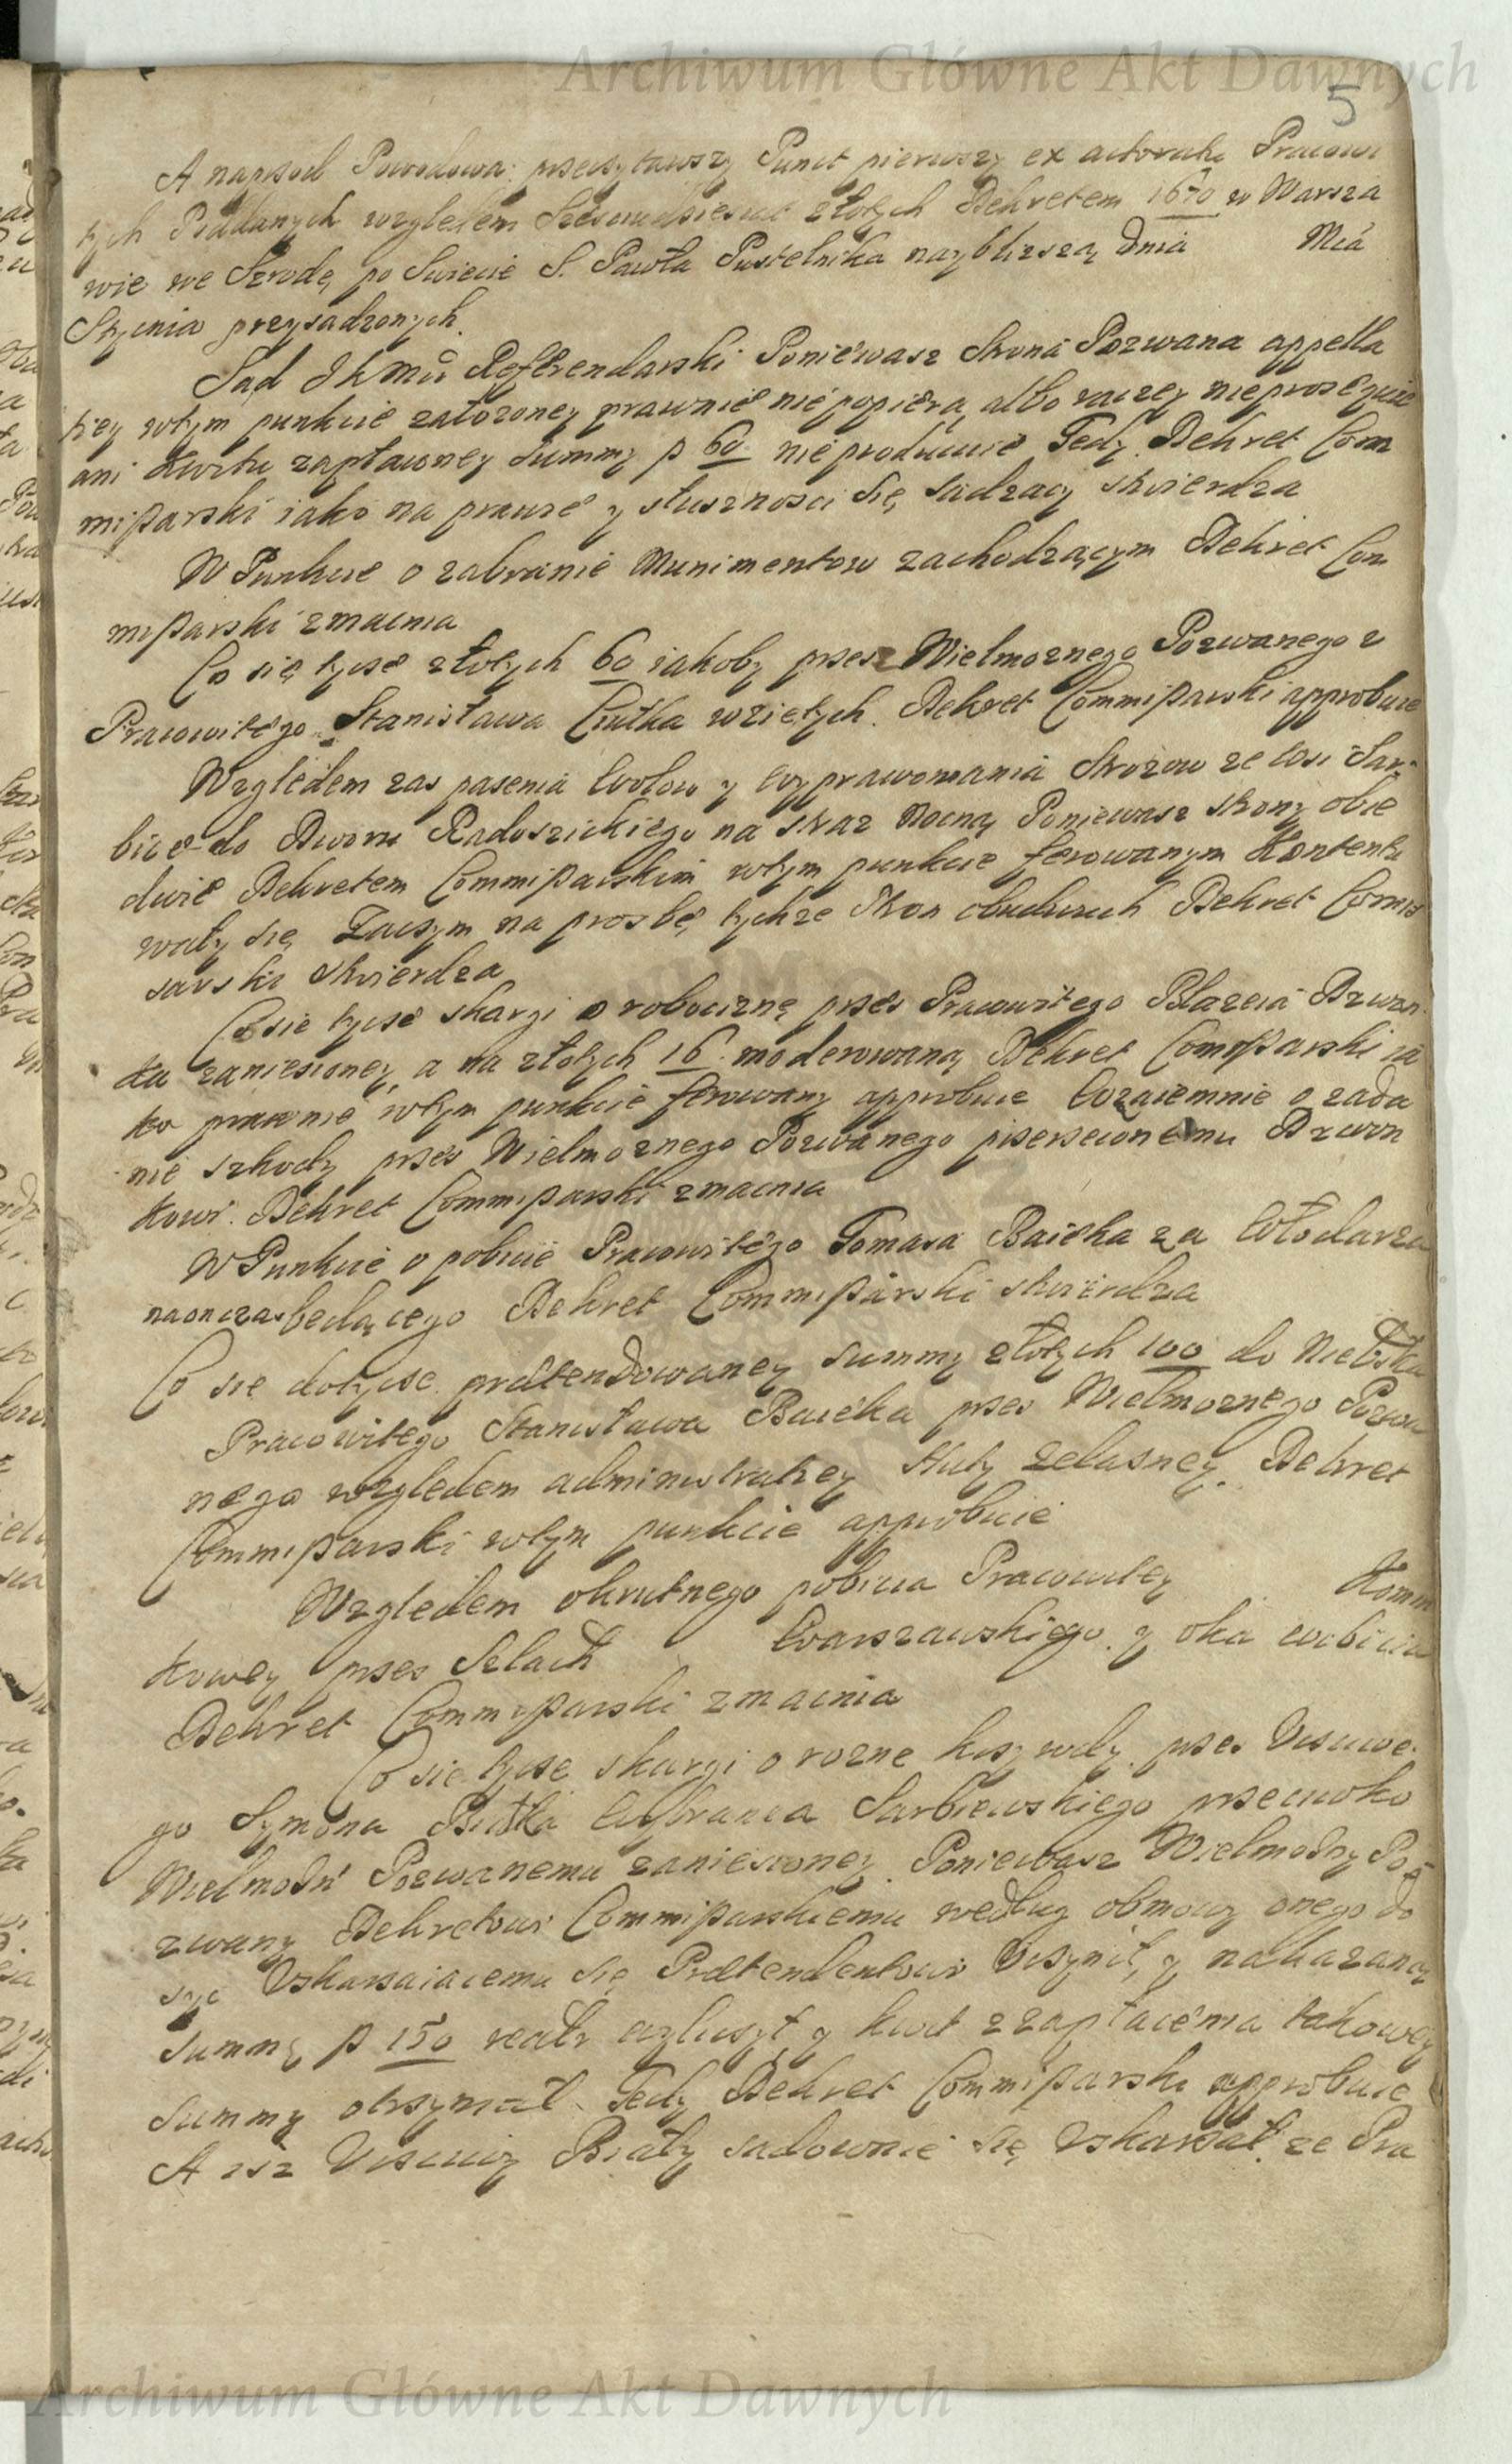 Archiwum Główne Akt Dawnych
5
A naprzod Powodowa przeczytawszy Punct pierwszy ex actoratu Pracowi
tych Poddanych względem Szescudziesiąt złotych Dekretem 1670 w Warsza
wie we Szrodę po Swięcie S. Pawła Pustelnika nayblizszą Dnia Mca
Stycnia przysadzonych.
Sąd JKMci Referendarski Poniewasz Strona Pozwana appella
tiey wtym punkcie założoney prawnie nie popiera albo raczey nieproseguie
ani Kwitu zapłaconey Summy p 60 nie producuie Tedy Dekret Com
missarski iako na prawie y słusznosci Się Sądzący stwierdza
W Punkcie o zabranie Munimentow zachodzącym Dekret Com
missarski zmacnia
Co się tycse złotych 60 iakoby przez Wielmoznego Pozwanego z
Pracowitego Stanisława Ciutka wziętych. Dekret Commissarski approbuie
Względem zas pasenia Wołow y Wyprawowania Strozow ze Wsi Sar
bice do Dworu Radoszickiego na straz Nocną Poniewasz strony obie
dwie Dekretem Commissarskim wtym punkcie ferowanym Kontento
wały się Zaczym na prosbę tychze Stron obudwuch Dekret Comis
sarski stwierdza
Co sie tycse skargi o robociznę przes Pracowitego Błazeia Dzwon
ka zaniesioney a na złotych 16 moderowaną Dekret Comissarski ia
ko prawnie wtym punkcie ferowany approbuie Wzaiemnie o zada
nie szkody przes Wielmoznego Pozwanego pisersecionemu Dzwon
kowi. Dekret Commissarski zmacnia
W Punkcie o pobicie Pracowitego Tomasa Baieka za Włodarza
naonczas będącego Dekret Commissarski stwierdza
Co się dotycse prætendowaney Summy złotych 100 do Nieboszka
Pracowitego Stanisława Baieka przes Wielmoznego Pozwa
nego względem administratiey Huty Zelazney. Dekret
Commissarski wtym punkcie approbuie
Względem okrutnego pobicia Pracowitey Komin
kowey przes Selach Warszawskiego y oka wybicia
Dekret Commissarski zmacnia
Co sie tycse skargi o rozne krzywdy przes Vsciwe
go Symona Białka Wybranca Sarbiewskiego przeciwko
Wielmożn Pozwanemu zaniesioney Poniewasz Wielmożny Po
zwany Dekretowi Commissarskiemu według obmowy onego do
syc Vskarzaiacemu się Prætendentowi Vczynił, y nakazaną
Summę p 150 realr wyliczył y kwit z zapłacenia takowey
Summy otrzymał. Tedy Dekret Commissarski approbuie
A isz Vsciwy Biały sadownie się Vskarzał, ze Pra
Archiwum Główne Akt Dawnych